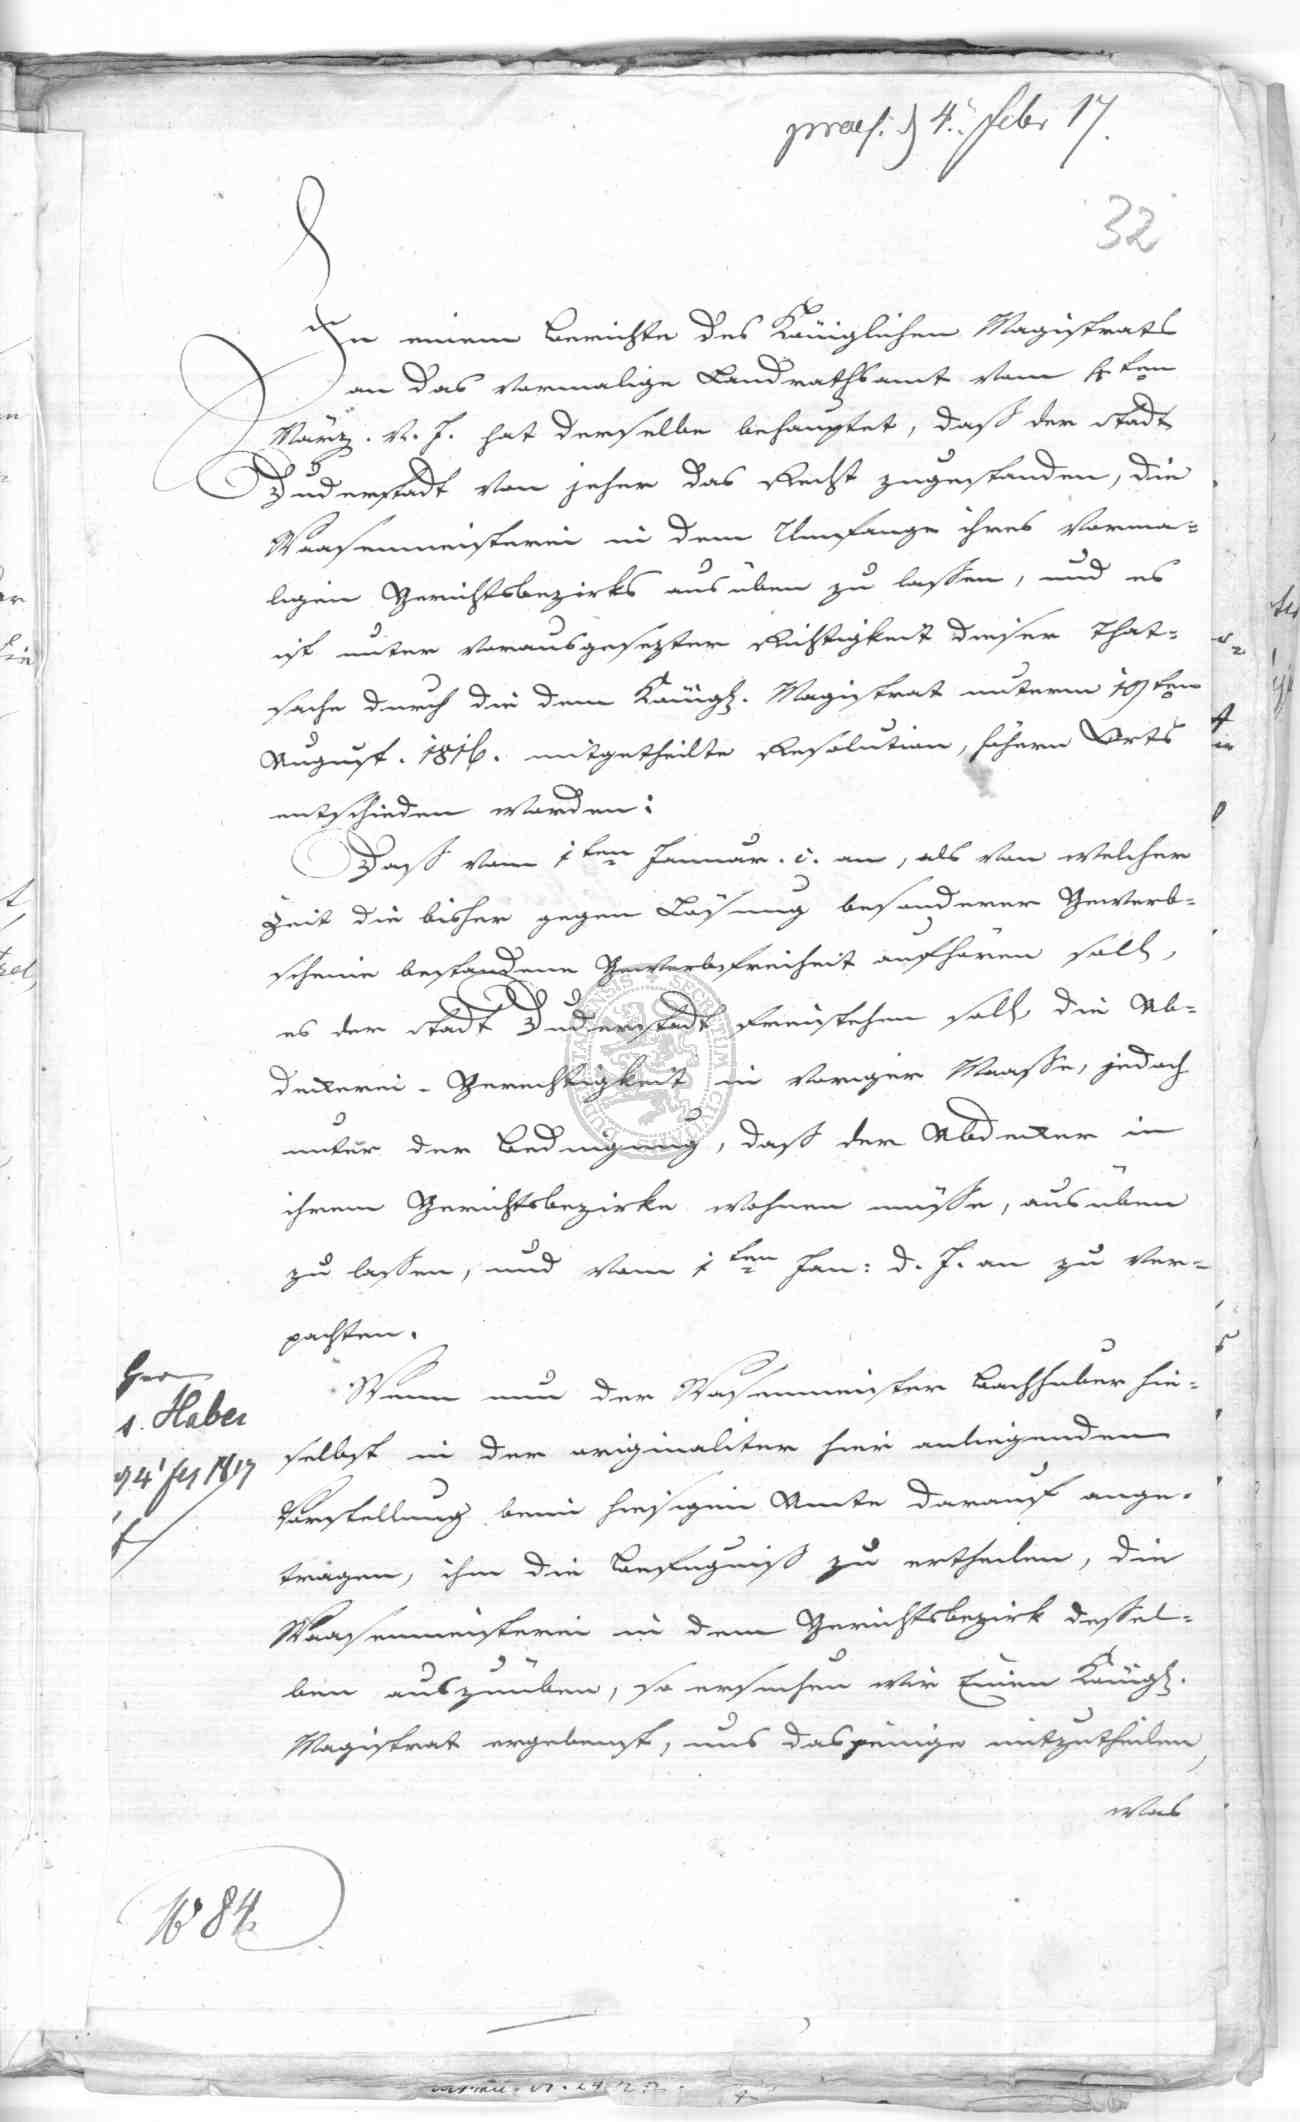 praes. d 4. Febr 17.
32
In einem Berichte des Königlichen Magistrats
an das vormalige Landrathsamt vom 4ten
März. v. J. hat derselbe behauptet, daß der Stadt
Duderstadt von jeher das Recht zugestanden, die
Waasenmeisterei in dem Umfange ihres vorma-
ligen Gerichtsbezirks ausüben zu lassen, und es
ist unter vorausgesezter Richtigkeit dieser That-
sache durch die dem Königl. Magistrat unterm 19ten
August. 1816. mitgetheilte Resolution, höhern Orts
entschieden worden:
Daß vom 1ten Januar. c. an, als von welcher
Zeit die bisher gegen Lösung besonderer Gewerb-
scheine bestandene Gewerbsfreiheit aufhören soll,
es der Stadt Duderstadt freistehen soll, die Ab-
deckerei-Gerechtigkeit in voriger Maasse, jedoch
unter der Bedingung, daß der Abdecker in
ihrem Gerichtsbezirke wohnen müsse, ausüben
zu lassen, und vom 1ten Jan: d. J. an zu ver-
pachten.
Wenn nun der Wasenmeister Bachhuber hie-
selbst in der originaliter hier anliegenden
Vorstellung beim hiesigen Amte darauf ange-
tragen, ihm die Befugniß zu ertheilen, die
Waasenmeisterei in dem Gerichtsbezirk dessel-
ben auszuüben, so ersuchen wir Einen Königl.
Magistrat ergebenst, uns dasjenige mitzutheilen,
was
Herrn
s. Haber
d 4 1817
No 84.